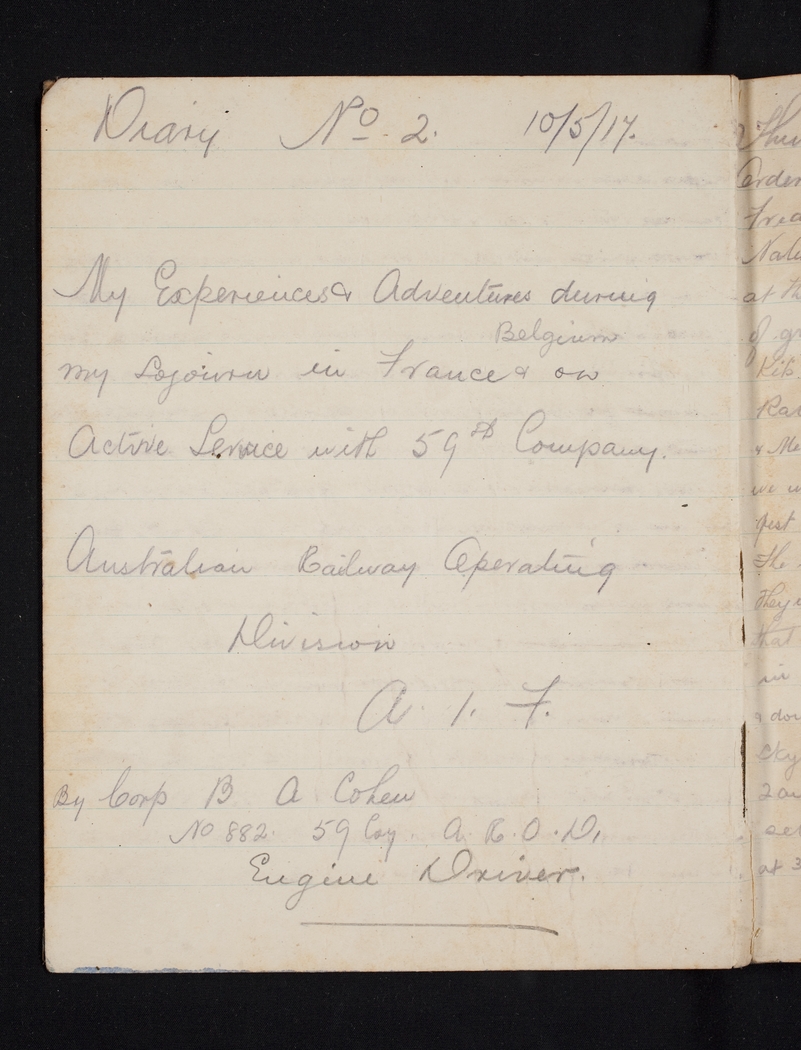 Diary No. 2. 10/5/17.
My Experiences & Adventures during
Belgium
my Sojourn in France & on
Active Service with 59th Company.
Australian Railway Operating
Division
A. I. F.
By Corp B A Cohen
No 882. 59 Coy. A. R. O. D.
Engine Driver.
Order
at th
of gr
Kit
& Me
we w
the
They
that
in
& dow
at 3